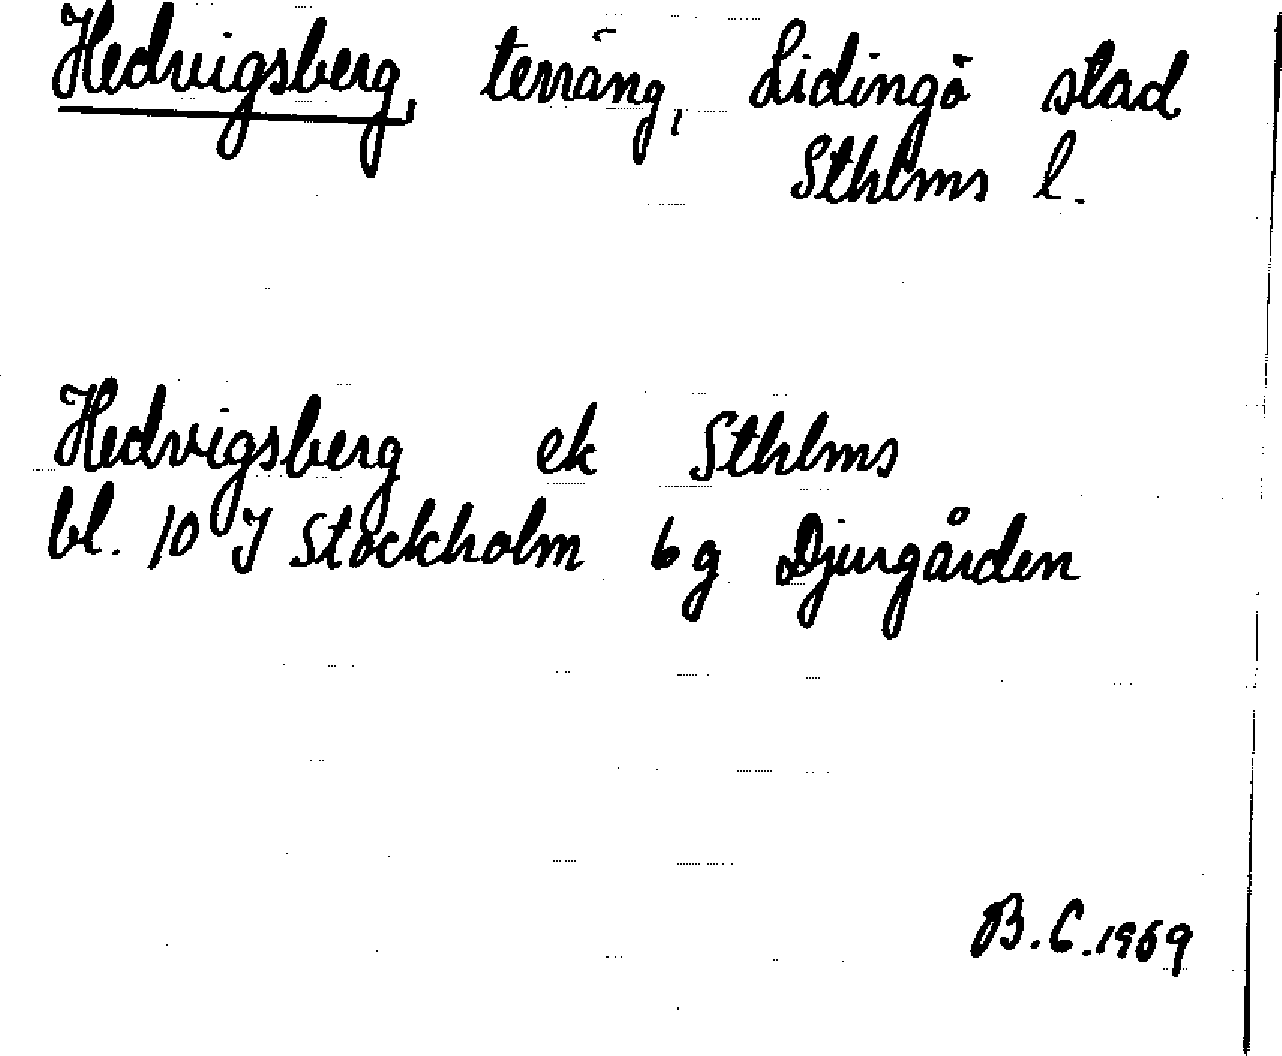 Hedvigsberg, terräng, Lidingö stad
Sthlms l.
Hedvigsberg ek Sthlms
bl. 10 J Stockholm 6 g Djurgården
B.C.1969